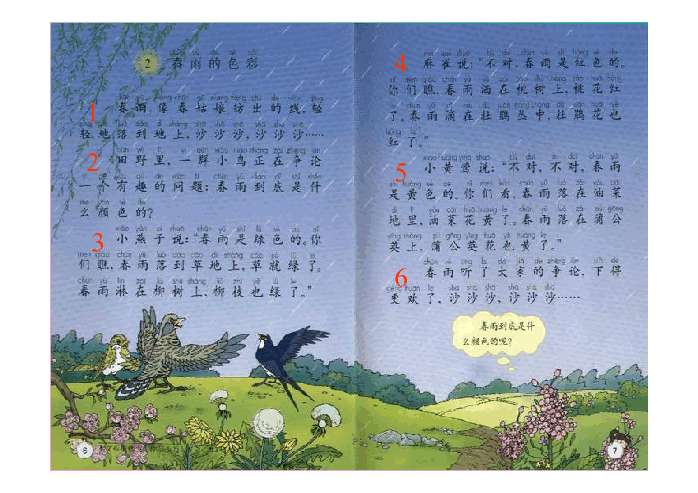 2 春雨的色彩
1 春雨像春姑娘纺出的线，轻
轻地落到地上，沙沙沙，沙沙沙……
2 田野里，一群小鸟正在争论
一个有趣的问题：春雨到底是什
么颜色的？
3 小燕子说：“春雨是绿色的。你
们瞧，春雨落到草地上，草就绿了。
春雨淋在柳树上，柳枝也绿了。”
6
4 麻雀说：“不对，春雨是红色的。
你们瞧，春雨洒在桃树上，桃花红
了。春雨滴在杜鹃丛中，杜鹃花也
红了。”
5 小黄莺说：“不对，不对，春雨
是黄色的。你们看，春雨落在油菜
地里，油菜花黄了。春雨落在蒲公
英上，蒲公英花也黄了。”
6 春雨听了大家的争论，下得
更欢了，沙沙沙，沙沙沙……
春雨到底是什
么颜色的呢？
7